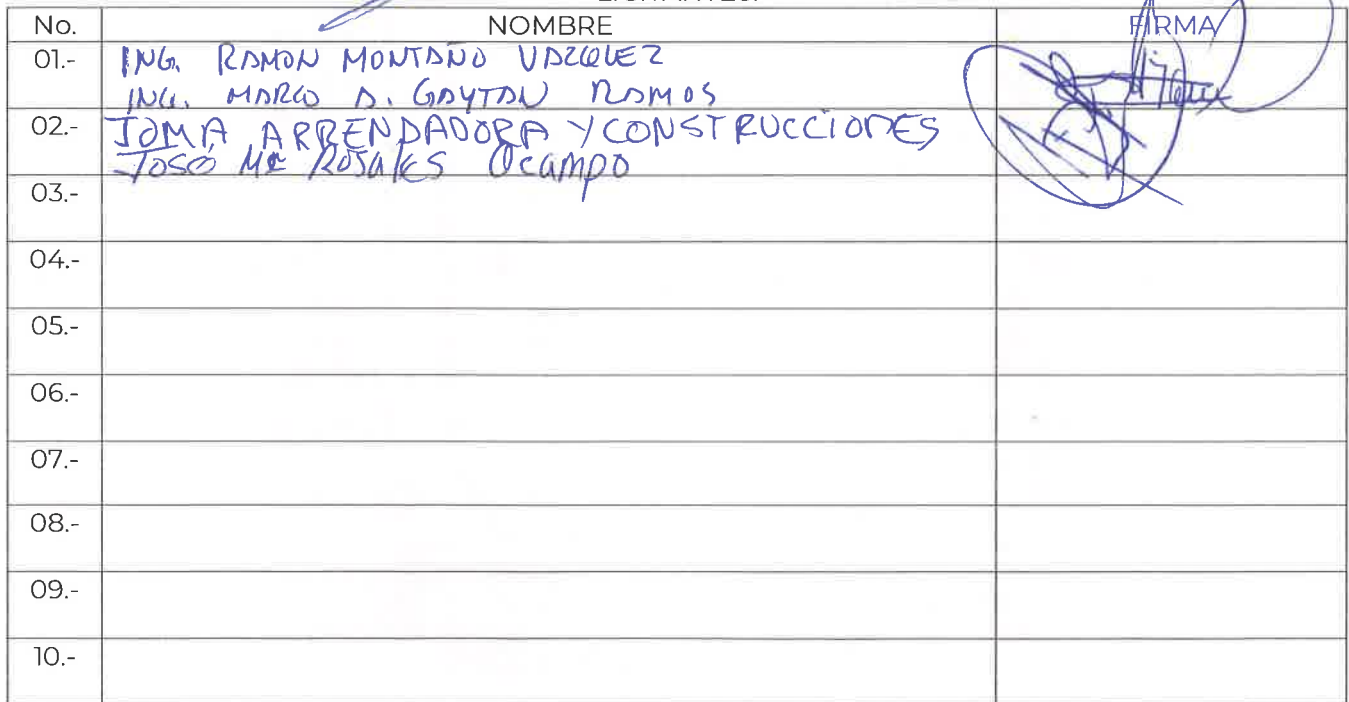 No. NOMBRE FIRMA
01.- ING. RAMON MONTAÑO VAZQUEZ
ING. MARCO A. GAYTAN RAMOS
02.- JOMA ARRENDADORA Y CONSTRUCCIONES
JOSÉ Ma ROSALES OCAMPO
03.-
04.-
05.-
06.-
07.-
08.-
09.-
10.-